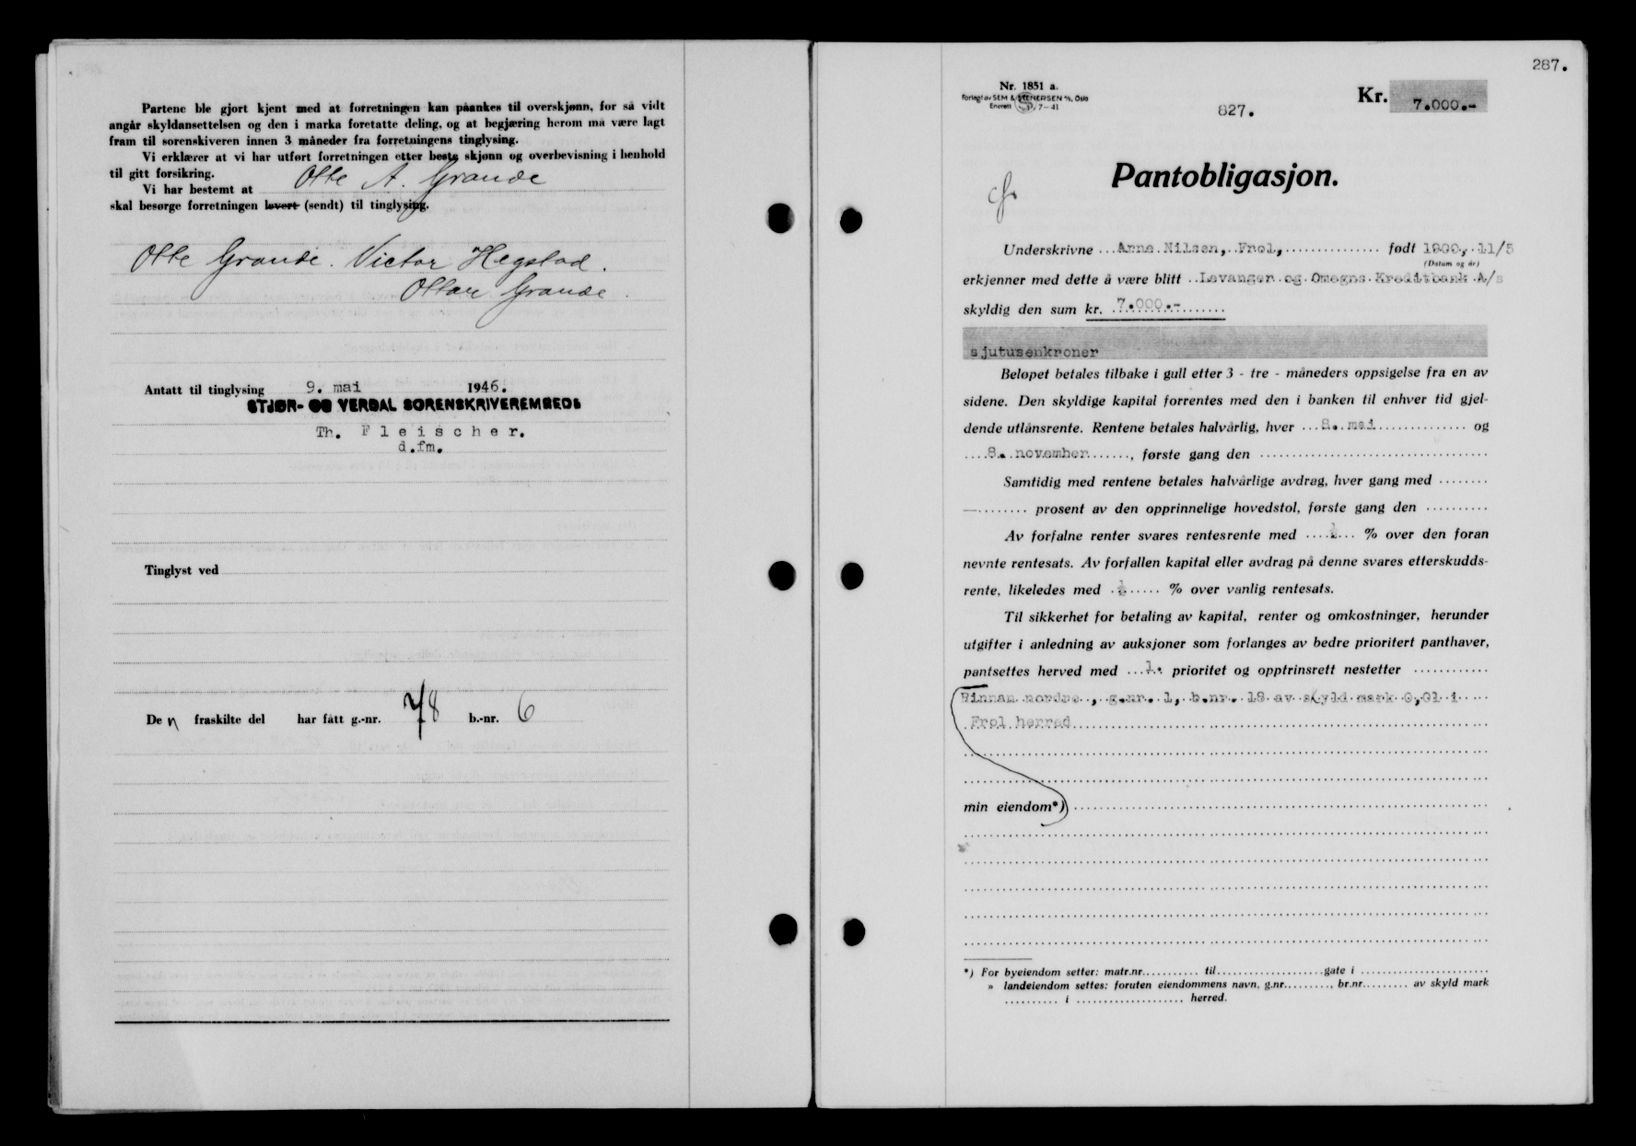 Partene ble gjort kjent med at forretningen kan påankes til overskjønn, for så vidt
angår skyldansettelsen og den i marka foretatte deling, og at begjæring herom må være lagt
fram til sorenskriveren innen 3 måneder fra forretningens tinglysing.
Vi erklærer at vi har utført forretningen etter beste skjønn og overbevisning i henhold
til gitt forsikring.
Vi har bestemt at Otte A. Grande
skal besørge forretningen levert (sendt) til tinglysing.
Otte Grande. Victor Hegstad.
Ottar Grande.
Antatt til tinglysing 9. mai 1946.
STJØR- OG VERDAL SORENSKRIVEREMBEDE
Th. Fleischer.
d.fm.
Tinglyst ved
Den fraskilte del har fått g.-nr. 78 b.-nr. 6
287.
Nr. 1851 a.
Forlagt av SEM & STENERSEN A/S, Oslo
Enerett 7-41
827.
Kr. 7.000.-
Pantobligasjon.
Underskrivne Arne Nilsen, Frol, født 1900, 11/5
(Datum og år)
erkjenner med dette å være blitt Levanger og Omegns Kreditbank A/s
skyldig den sum kr. 7.000.-
sjutusenkroner
Beløpet betales tilbake i gull etter 3 - tre - måneders oppsigelse fra en av
sidene. Den skyldige kapital forrentes med den i banken til enhver tid gjel-
dende utlånsrente. Rentene betales halvårlig, hver 8. mai og
8. november, første gang den
Samtidig med rentene betales halvårlige avdrag, hver gang med
— prosent av den opprinnelige hovedstol, første gang den
Av forfalne renter svares rentesrente med ½ % over den foran
nevnte rentesats. Av forfallen kapital eller avdrag på denne svares etterskudds-
rente, likeledes med ½ % over vanlig rentesats.
Til sikkerhet for betaling av kapital, renter og omkostninger, herunder
utgifter i anledning av auksjoner som forlanges av bedre prioritert panthaver,
pantsettes herved med 1. prioritet og opptrinsrett nestetter
Rinnan nordre, g.nr. 1, b.nr. 18 av skyld mark 0,01 i
Frol herred
min eiendom*)
*) For byeiendom setter: matr.nr. til gate i
» landeiendom settes: foruten eiendommens navn, g.nr. , br.nr. av skyld mark
i herred.